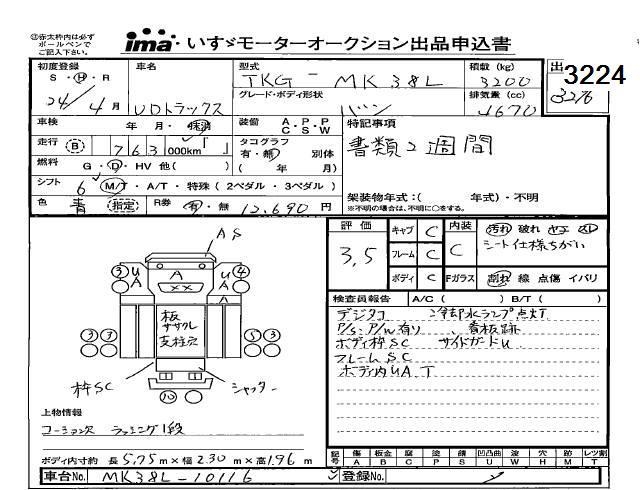 ①赤太枠内は必ず
ボールペンで
ご記入下さい。
ima・いすゞモーターオークション出品申込書
初度登録
車名
型式
積載 (kg)
出
3224
S・H・R
TKG - MK38L
3200
3276
24/4月
UDトラックス
グレード・ボディ形状
バン
排気量 (cc)
4670
車検
年・月・抹消
装備
A・P・P
C・S・W
特記事項
走行
B
763,000km
タコグラフ
有・無
別体
(年 月)
書類2週間
燃料
G・D・HV 他( )
シフト
6 M/T・A/T・特殊 (2ペダル・3ペダル)
架装物年式:( 年式)・不明
※不明の場合は、不明に○をする。
色
青
指定
R券
有・無
12,690円
評価
3.5
キャブ
C
内装
C
汚れ 破れ ヤニ スレ
シート仕様ちがい
フレーム
C
ボディ
C
Fガラス
割れ 線 点傷 イバリ
AS
3
U
A
A
U
A
4
××
板
ササクレ
支柱穴
3 3
5 3
枠SC
シャッター
10
検査員報告
A/C ( )
B/T ( )
デジタコ
冷却水ランプ点灯
P/S・P/W有り、看板跡
ボディ枠SC サイドガードU
フレームSC
ボディ内UA.T
上物情報
コーションズ ラッシング1段
ボディ内寸約 長 5.75 m×幅 2.30 m×高 1.96 m
記号
傷 板金 腐 塗 錆 凹凸曲 波 穴 跡 レツ割
A B C P S U W H M T
車台No.
MK38L-10116
登録No.